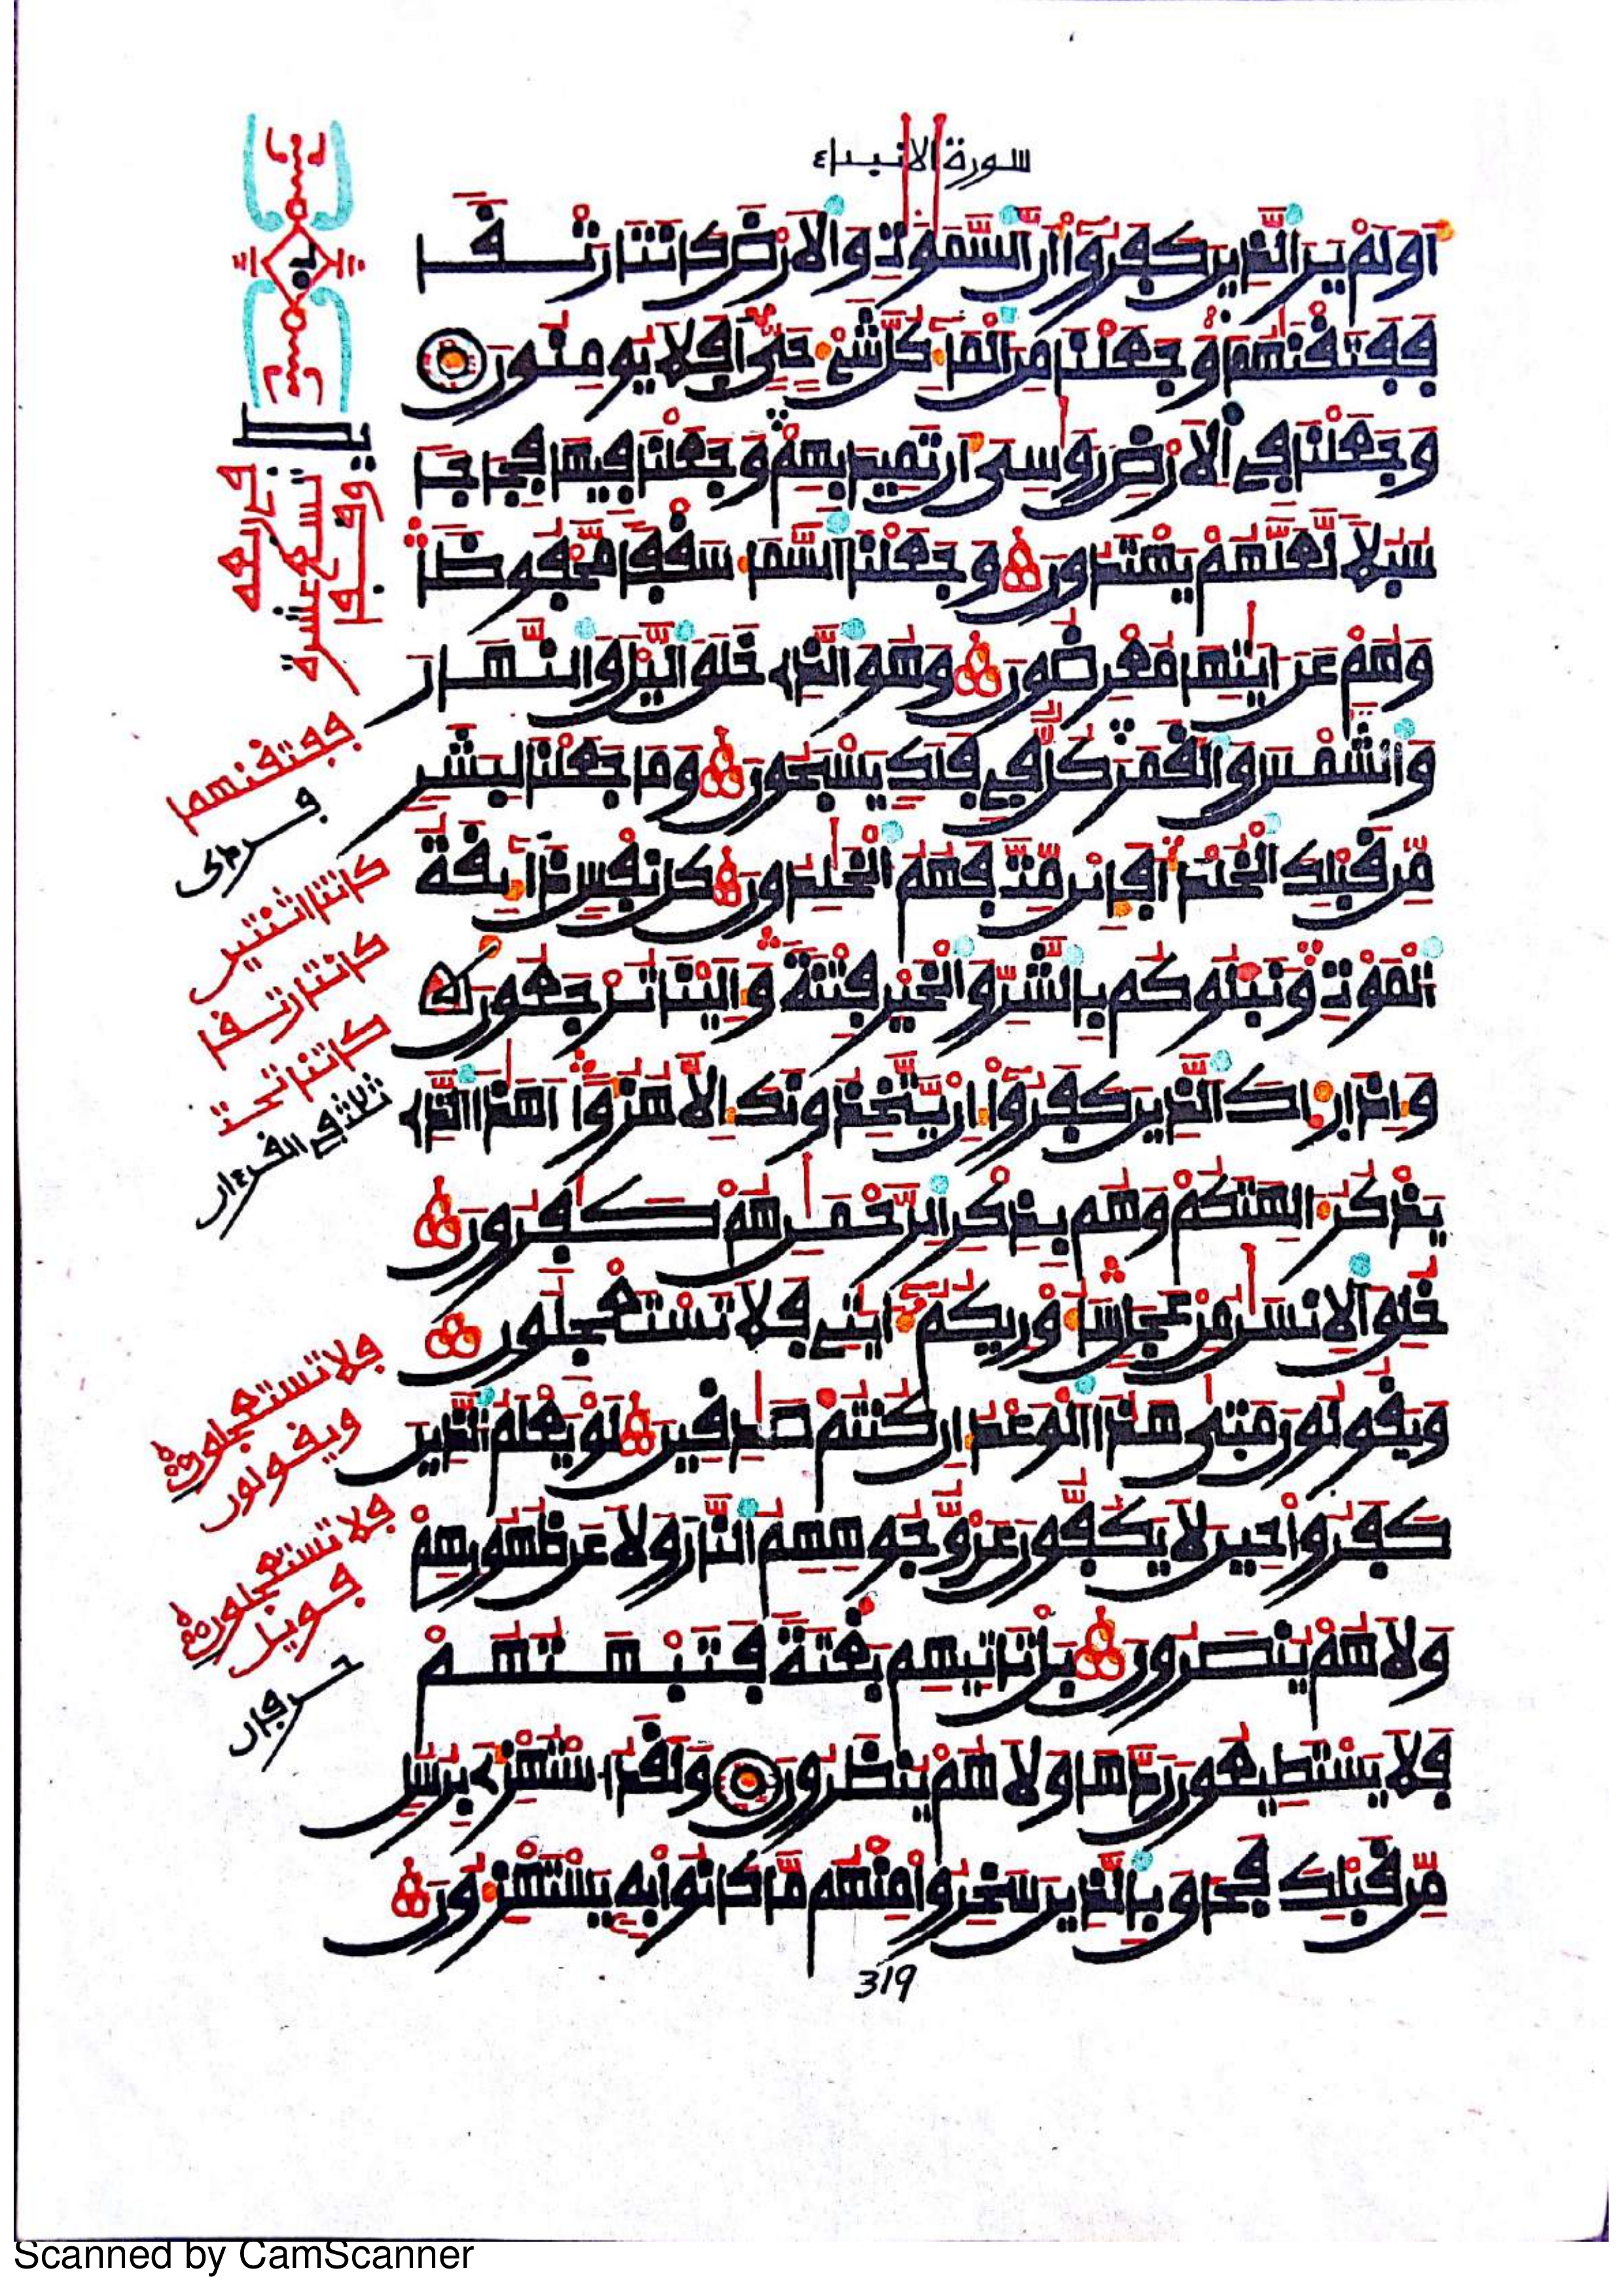 سورة الانبياء
اَوَلَمْ يَرَ الذِينَ كَفَرُوٓا أَنَّ السَّمَٰوَٰتِ وَالَارْضَ كَانَتَا رَتْقا
فَفَتَقْنَٰهُمَا وَجَعَلْنَا مِنَ الْمَآءِ كُلَّ شَيْءٍ حَيٍّ اَفَلَا يُومِنُونَ
وَجَعَلْنَا فِي الَارْضِ رَوَٰسِيَ أَن تَمِيدَ بِهِمْ وَجَعَلْنَا فِيهَا فِجَاجا
سُبُلا لَّعَلَّهُمْ يَهْتَدُونَ وَجَعَلْنَا السَّمَآءَ سَقْفا مَّحْفُوظا
وَهُمْ عَنَ اٰيَٰتِهَا مُعْرِضُونَ وَهُوَ الذِے خَلَقَ اليْلَ وَالنَّهَارَ
وَالشَّمْسَ وَالْقَمَرَ كُلّ فِي فَلَك يَسْبَحُونَ وَمَا جَعَلْنَا لِبَشَر
مِّن قَبْلِكَ الْخُلْدَ أَفَإِيْن مِّتَّ فَهُمُ الْخَٰلِدُونَ كُلُّ نَفْس ذَآئِقَةُ
الْمَوْتِ وَنَبْلُوكُم بِالشَّرِّ وَالْخَيْرِ فِتْنَة وَإِلَيْنَا تُرْجَعُونَ
وَإِذَا رَءَاكَ الذِينَ كَفَرُوٓا إِنْ يَّتَّخِذُونَكَ إِلَّا هُزُؤًا اَهَٰذَا الذِے
يَذْكُرُ ءَالِهَتَكُمْ وَهُم بِذِكْرِ الرَّحْمَٰنِ هُمْ كَٰفِرُونَ
خُلِقَ الِانسَٰنُ مِنْ عَجَل سَأُوْرِيكُمُ ءَايَٰتِے فَلَا تَسْتَعْجِلُونِ
وَيَقُولُونَ مَتَىٰ هَٰذَا الْوَعْدُ إِن كُنتُمْ صَٰدِقِينَ لَوْ يَعْلَمُ الذِينَ
كَفَرُوا حِينَ لَا يَكُفُّونَ عَنْ وُّجُوهِهِمُ النَّارَ وَلَا عَن ظُهُورِهِمْ
وَلَا هُمْ يُنصَرُونَ بَلْ تَاتِيهِم بَغْتَة فَتَبْهَتُهُمْ
فَلَا يَسْتَطِيعُونَ رَدَّهَا وَلَا هُمْ يُنظَرُونَ وَلَقَدُ اسْتُهْزِۓَ بِرُسُل
مِّن قَبْلِكَ فَحَاقَ بِالذِينَ سَخِرُوا مِنْهُم مَّا كَانُوا بِهِ يَسْتَهْزِءُونَ
319
يط
وقفوا
تسع عشرة
ففتقنهما
كانتا اثنتين
كانتا رتقا
كانتا تحت
فلا تستعجلون
ويقولون
فلا تستعجلون
فويل
Scanned by CamScanner